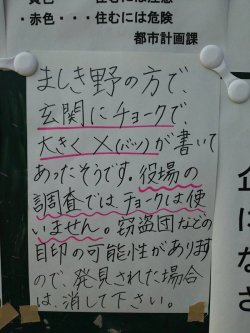 ・黄色・・・住むには注意
・赤色・・・住むには危険
都市計画課
ましき野の方で、
玄関にチョークで、
大きく×(バツ)が書いて
あったそうです。役場の
調査ではチョークは使
いません。窃盗団などの
目印の可能性があります
ので、発見された場合
は、消して下さい。